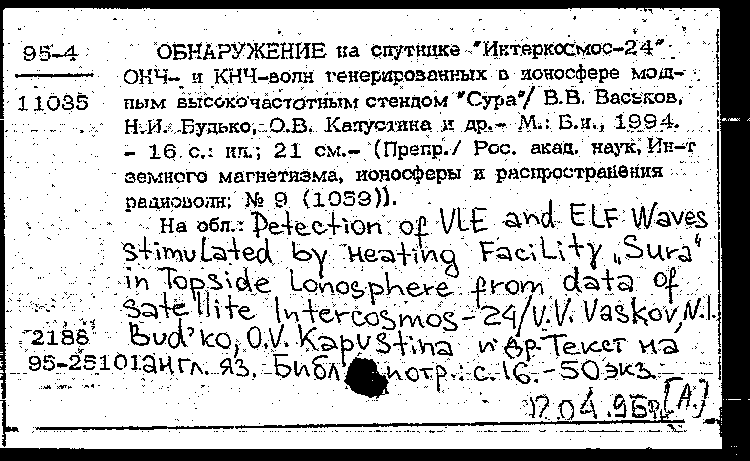 95-4
11035
ОБНАРУЖЕНИЕ на спутнике "Интеркосмос-24"
ОНЧ- и КНЧ-волн генерированных в ионосфере мощ-
ным высокочастотным стендом "Сура"/ В.В. Васьков,
Н.И. Будько, О.В. Капустина и др.- М.: Б.и., 1994.
- 16 с.: ил.; 21 см.- (Препр./ Рос. акад. наук, Ин-т
земного магнетизма, ионосферы и распространения
радиоволн; № 9 (1059)).
На обл.: Detection of VLE and ELF Waves
stimulated by Heating Facility „Sura"
in Topside Lonosphere from data of
satellite Intercosmos-24/V.V. Vaskov, N.I.
Bud'ko, O.V. Kapustina и др. Текст на
англ. яз. Библ потр.: с.16.-50экз.
2186
95-25101
17 04.95г. [А.]